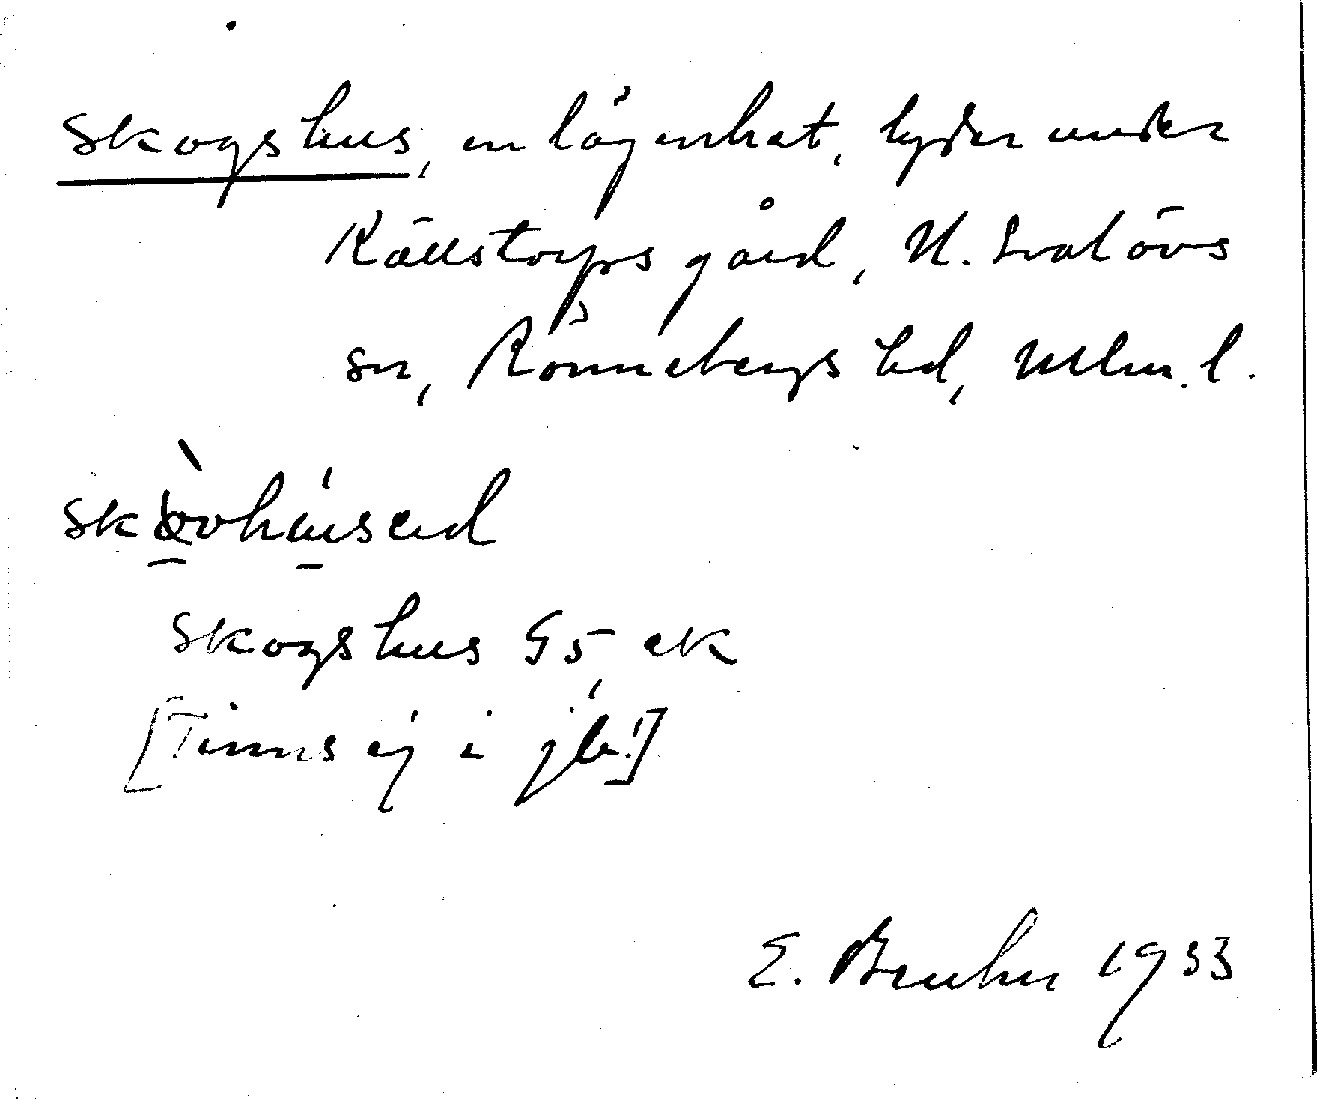 Skogshus, en lägenhet, lyder under
Källstorps gård, N. Svalövs
sn, Rönnebergs hd, Mlm. l.
Skogshus G5, ek
[Finns ej i jb!]
E. Bruhn 1933